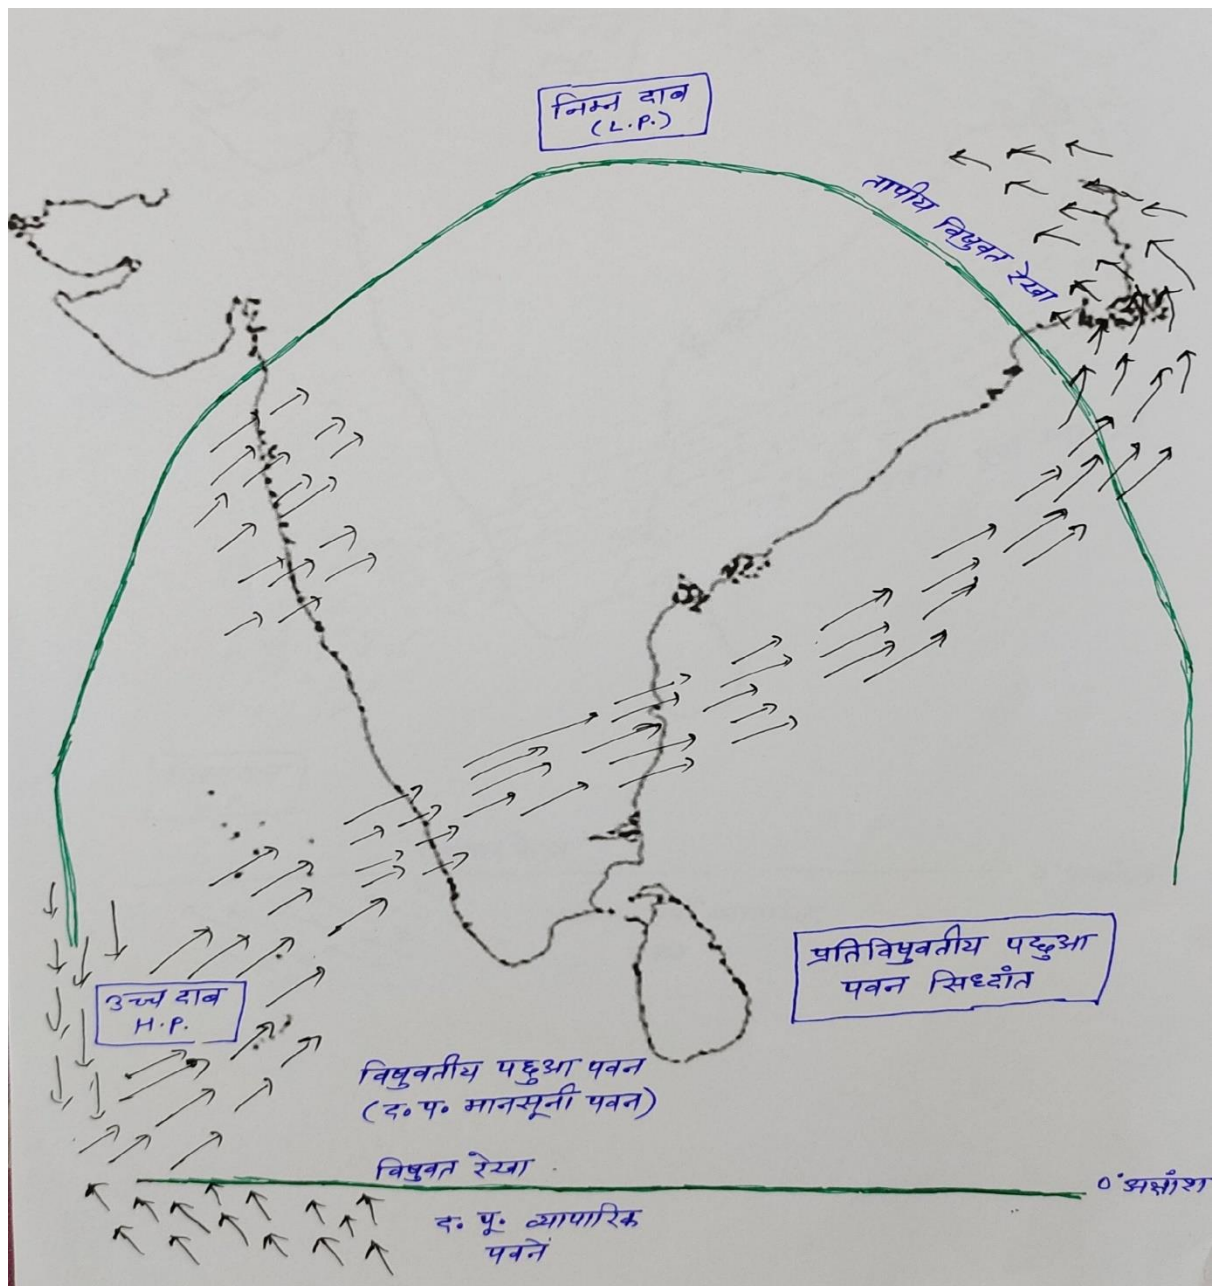 निम्न दाब
(L.P.)
तापीय विषुवत रेखा
प्रतिविषुवतीय पछुआ
पवन सिध्दांत
उच्च दाब
H.P.
विषुवतीय पछुआ पवन
(द॰ प॰ मानसूनी पवन)
विषुवत रेखा
0° अक्षांश
द॰ पू॰ व्यापारिक
पवनें